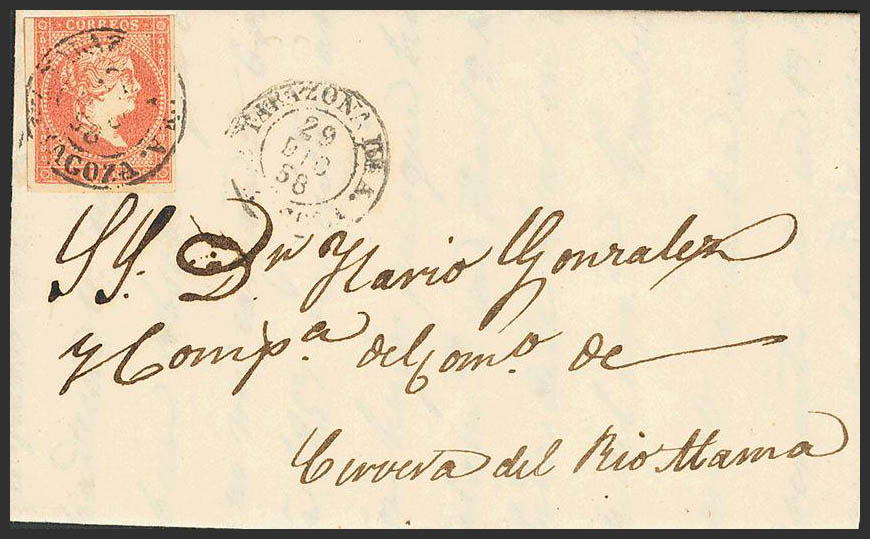 CORREOS
AGOZA.
TARAZONA DE A.
29
DIC
58
SS. Dn Ylario Gonzalez
y Compa. del Como. de
Cervera del Rio Alama